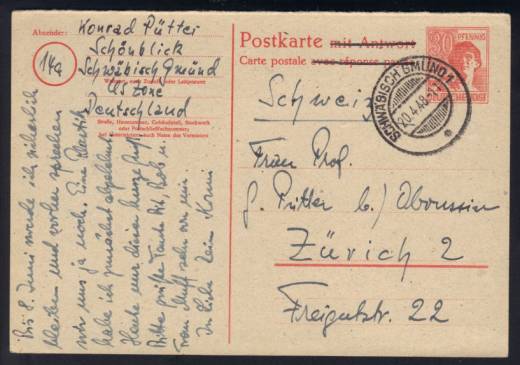 Absender:
Konrad Pütter
Schönblick
Schwäbisch Gmünd
US Zone
Deutschland
14a
Wohnort, auch Zustell- oder Leitpostamt
Straße, Hausnummer, Gebäudeteil, Stockwerk
oder Postschließfachnummer;
bei Untermietern auch Name des Vermieters
Bis 8. Juni werde ich sicherlich
bleiben und vorher sprechen
wir uns ja noch. Eine
habe ich zunächst abgelehnt.
Heute nur dieser kurze Gruß
Bitte grüße Tante
Frau
In Liebe Dein Konni
Postkarte mit Antwort
Carte postale avec réponse payée
30 PFENNIG
DEUTSCHE POST
SCHWÄBISCH GMÜND 1
20.4.48
Schweiz
Frau Prof.
G. Pütter b/
Zürich 2
Freigutstr. 22